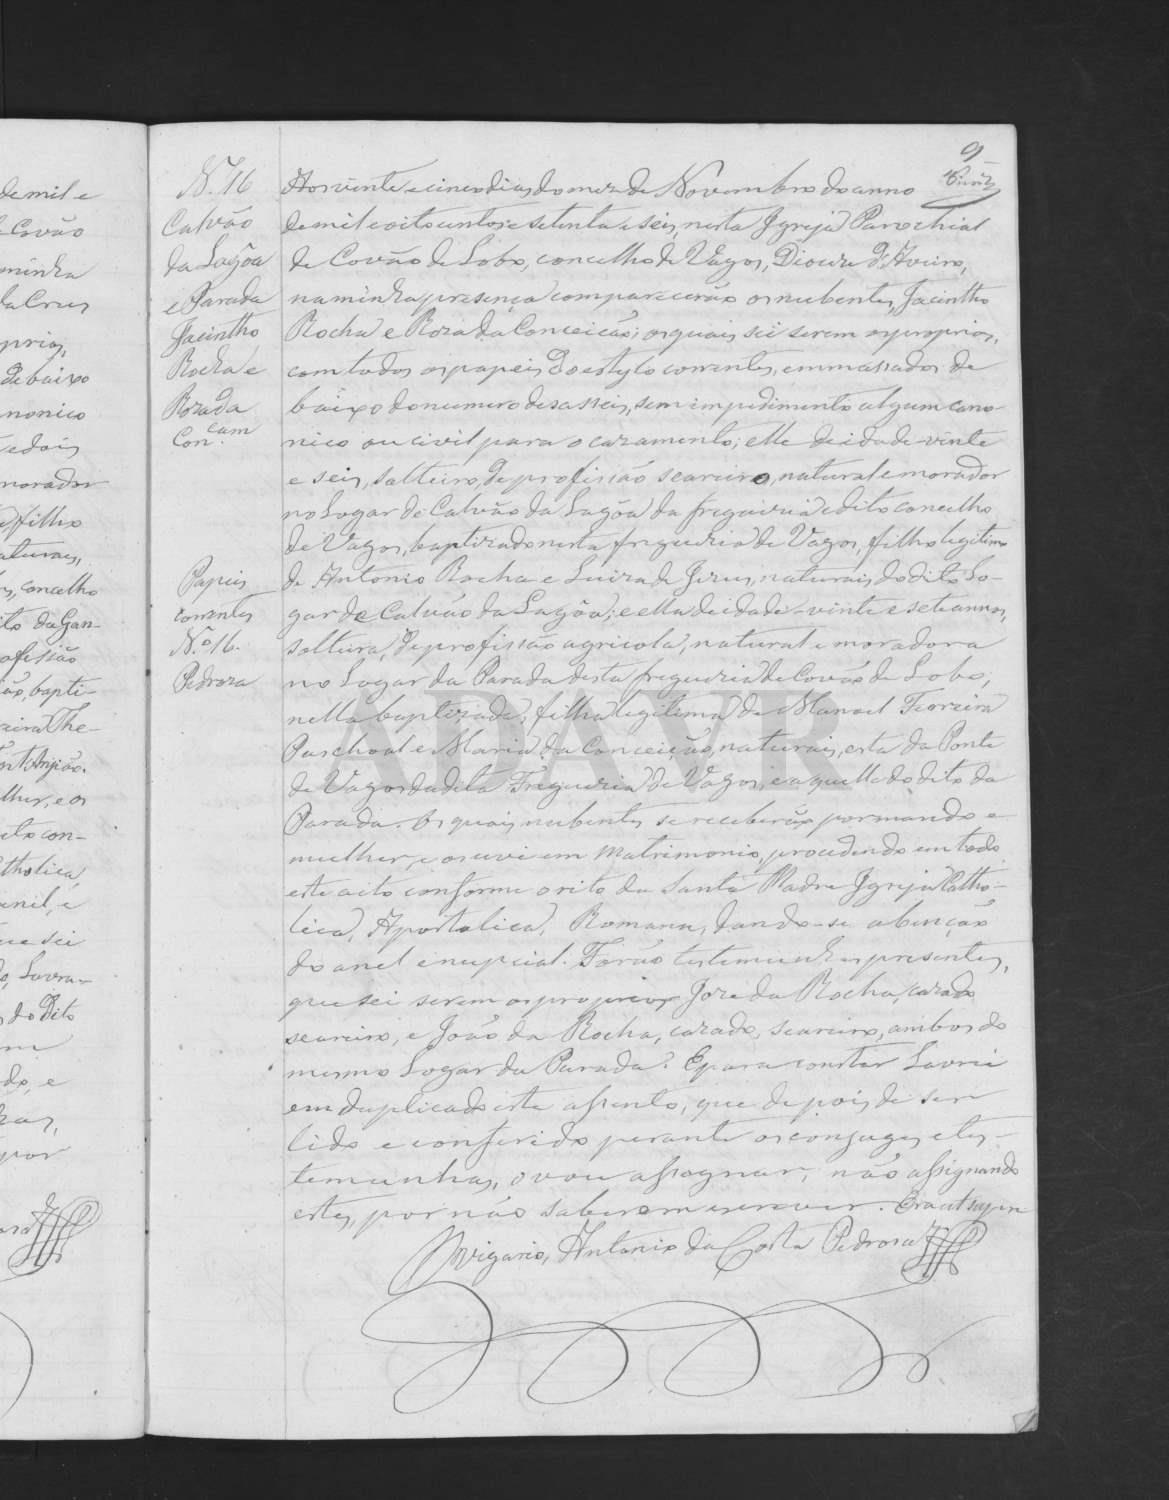 9
N.º 16
Calvão
da Lagôa
e Parada
Jacintho
Rocha e
Roza da
Con.cam
Papeis
correntes
N.º 16.
Pedroza
Aos vinte e cinco dias do mez de Novembro do anno
de mil e oito centos e setenta e seis, nesta Igreja Parochial
de Covão de Lobo, concelho de Vagos, Diocese d'Aveiro,
na minha presença comparecerão os nubentes, Jacintho
Rocha e Roza da Conceicão; os quais sei serem os proprios,
com todos os papeis do estylo correntes, emmassados de
baixo do numero desasseis, sem impedimento algum cano-
nico ou civil para o cazamento; elle de idade vinte
e seis, solteiro, de profissão seareiro, natural e morador
no Lugar de Calvão da Lagôa da freguezia e dito concelho
de Vagos, baptizado nesta freguezia de Vagos, filho legitimo
de Antonio Rocha e Luiza de Jezus, naturais do dito Lo-
gar de Calvão da Lagôa; e ella de idade vinte e sete annos,
solteira, de profissão agricola, natural e moradora
no Logar da Parada desta freguezia de Covão de Lobo,
nella baptizada; filha legitima de Manoel Ferreira
Paschoal e Maria da Conceição, naturais, esta da Ponte
de Vagos da dita Freguezia de Vagos, e aquelle do dito da
Parada. Os quais nubentes se receberão por marido e
mulher, e os uvi em Matrimonio, procedendo em todo
este acto conforme o rito da Santa Madre Igreja Catho-
lica, Apostolica, Romana, dando-se a benção
do anel e nupcial. Forão testemunhas presentes,
que sei serem os proprios Joze da Rocha, cazado
seareiro, e João da Rocha, cazado, seareiro, ambos do
mesmo Logar da Parada. E para constar Lavrei
em duplicado este assento, que depois de ser
lido e conferido perante os conjuges e tes-
temunhas, o vou assognar, não assignando
estes, por não saberem escrever. Era ut supra
O vigario, Antonio da Costa Pedroza
ADAVR
de mil e
Covão
minha
la Cruz
prios,
debaixo
nonico
e dois
morador
filho
aturaes,
concelho
ito da Gan-
ofissão
ão, bapti-
The-
lher, e os
cto con-
tholica,
anil, e
ue sei
Lavra-
do Dito
do, e
por